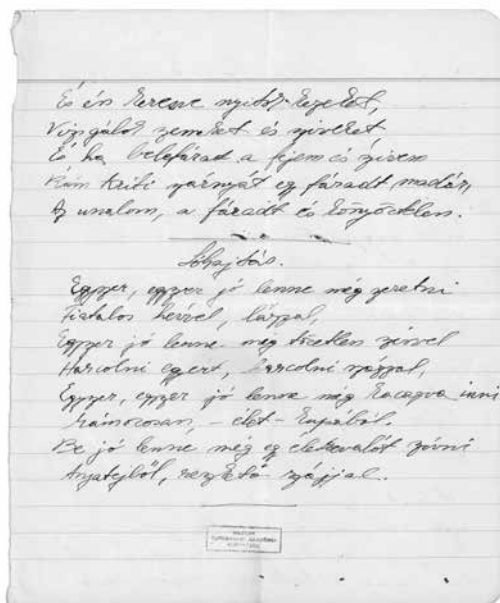 És én keresve nyitok kezeket,
Vizsgálok szemeket és sziveket
És ha belefárad a fejem és szivem
Rám teríti szárnyát egy fáradt madár,
Az unalom, a fáradt és könyörtelen.
Sóhajtás.
Egyszer, egyszer jó lenne még szeretni
Fiatalos hévvel, lázzal,
Egyszer jó lenne még töretlen szívvel
Harcolni egyért, harcolni százzal,
Egyszer, egyszer jó lenne még kacagva inni
Mámorosan, – élet – kupából.
Be jó lenne még egy életrevalót szívni
Anyatejből, reszkető szájjal.
MAGYAR
TUDOMÁNYOS AKADÉMIA